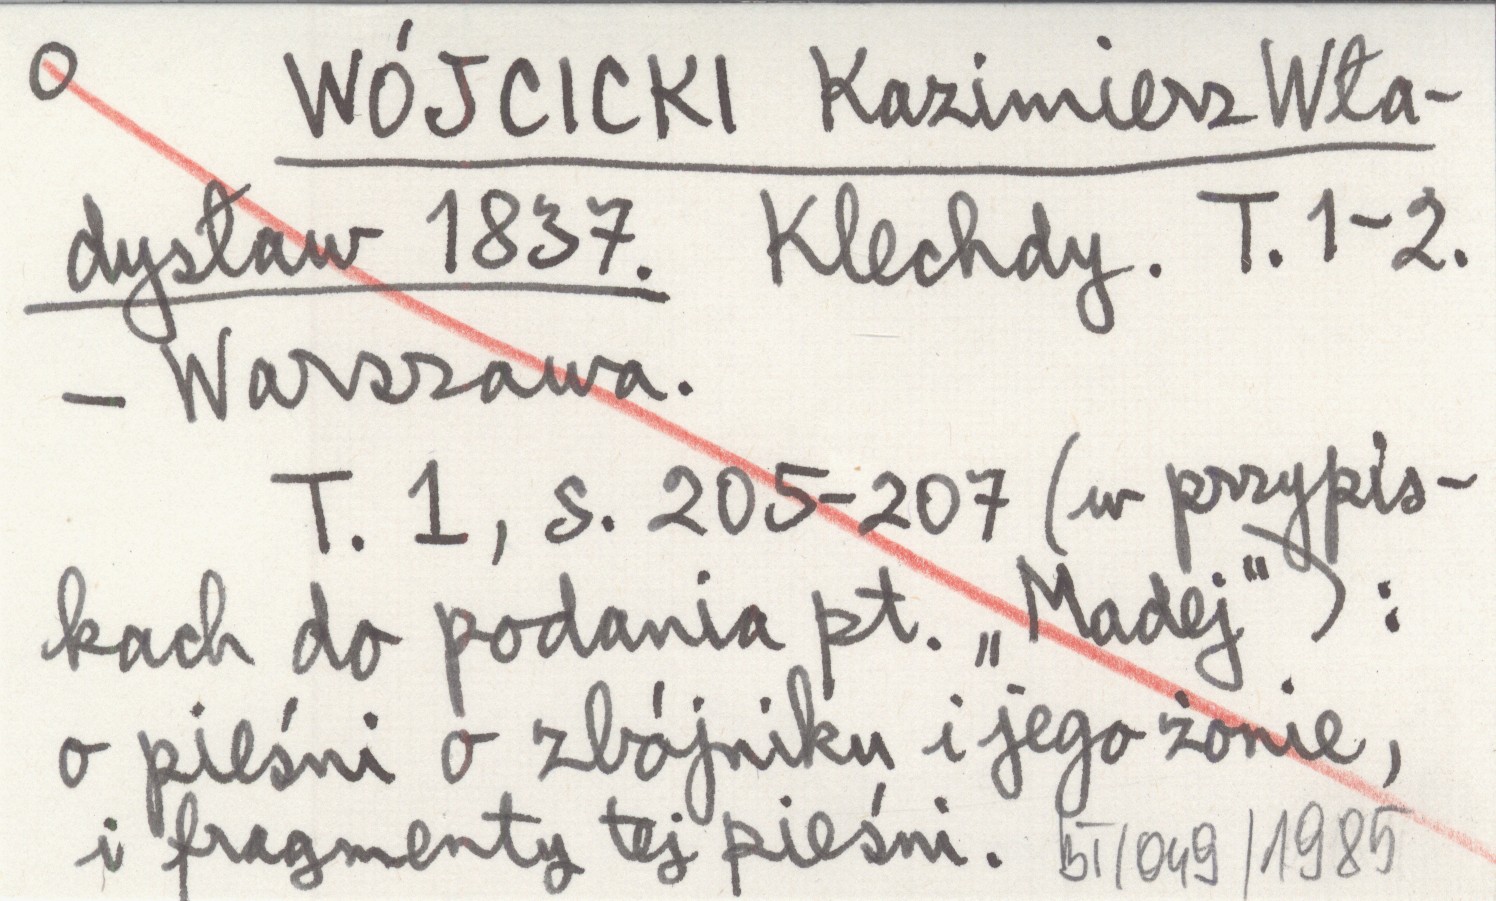 O WÓJCICKI Kazimierz Wła-
dysław 1837. Klechdy. T. 1-2.
– Warszawa.
T. 1, s. 205-207 (w przypis-
kach do podania pt. „Madej"):
o pieśni o zbójniku i jego żonie,
i fragmenty tej pieśni. BT/049/1985